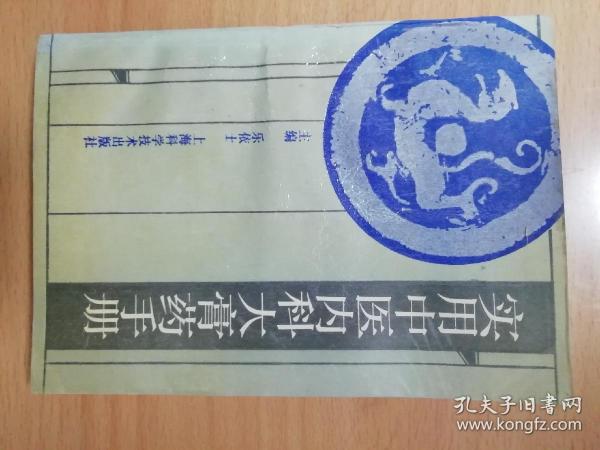 实用中医内科大膏药手册
主编 乐依士 上海科学技术出版社
孔夫子旧书网
www.kongfz.com